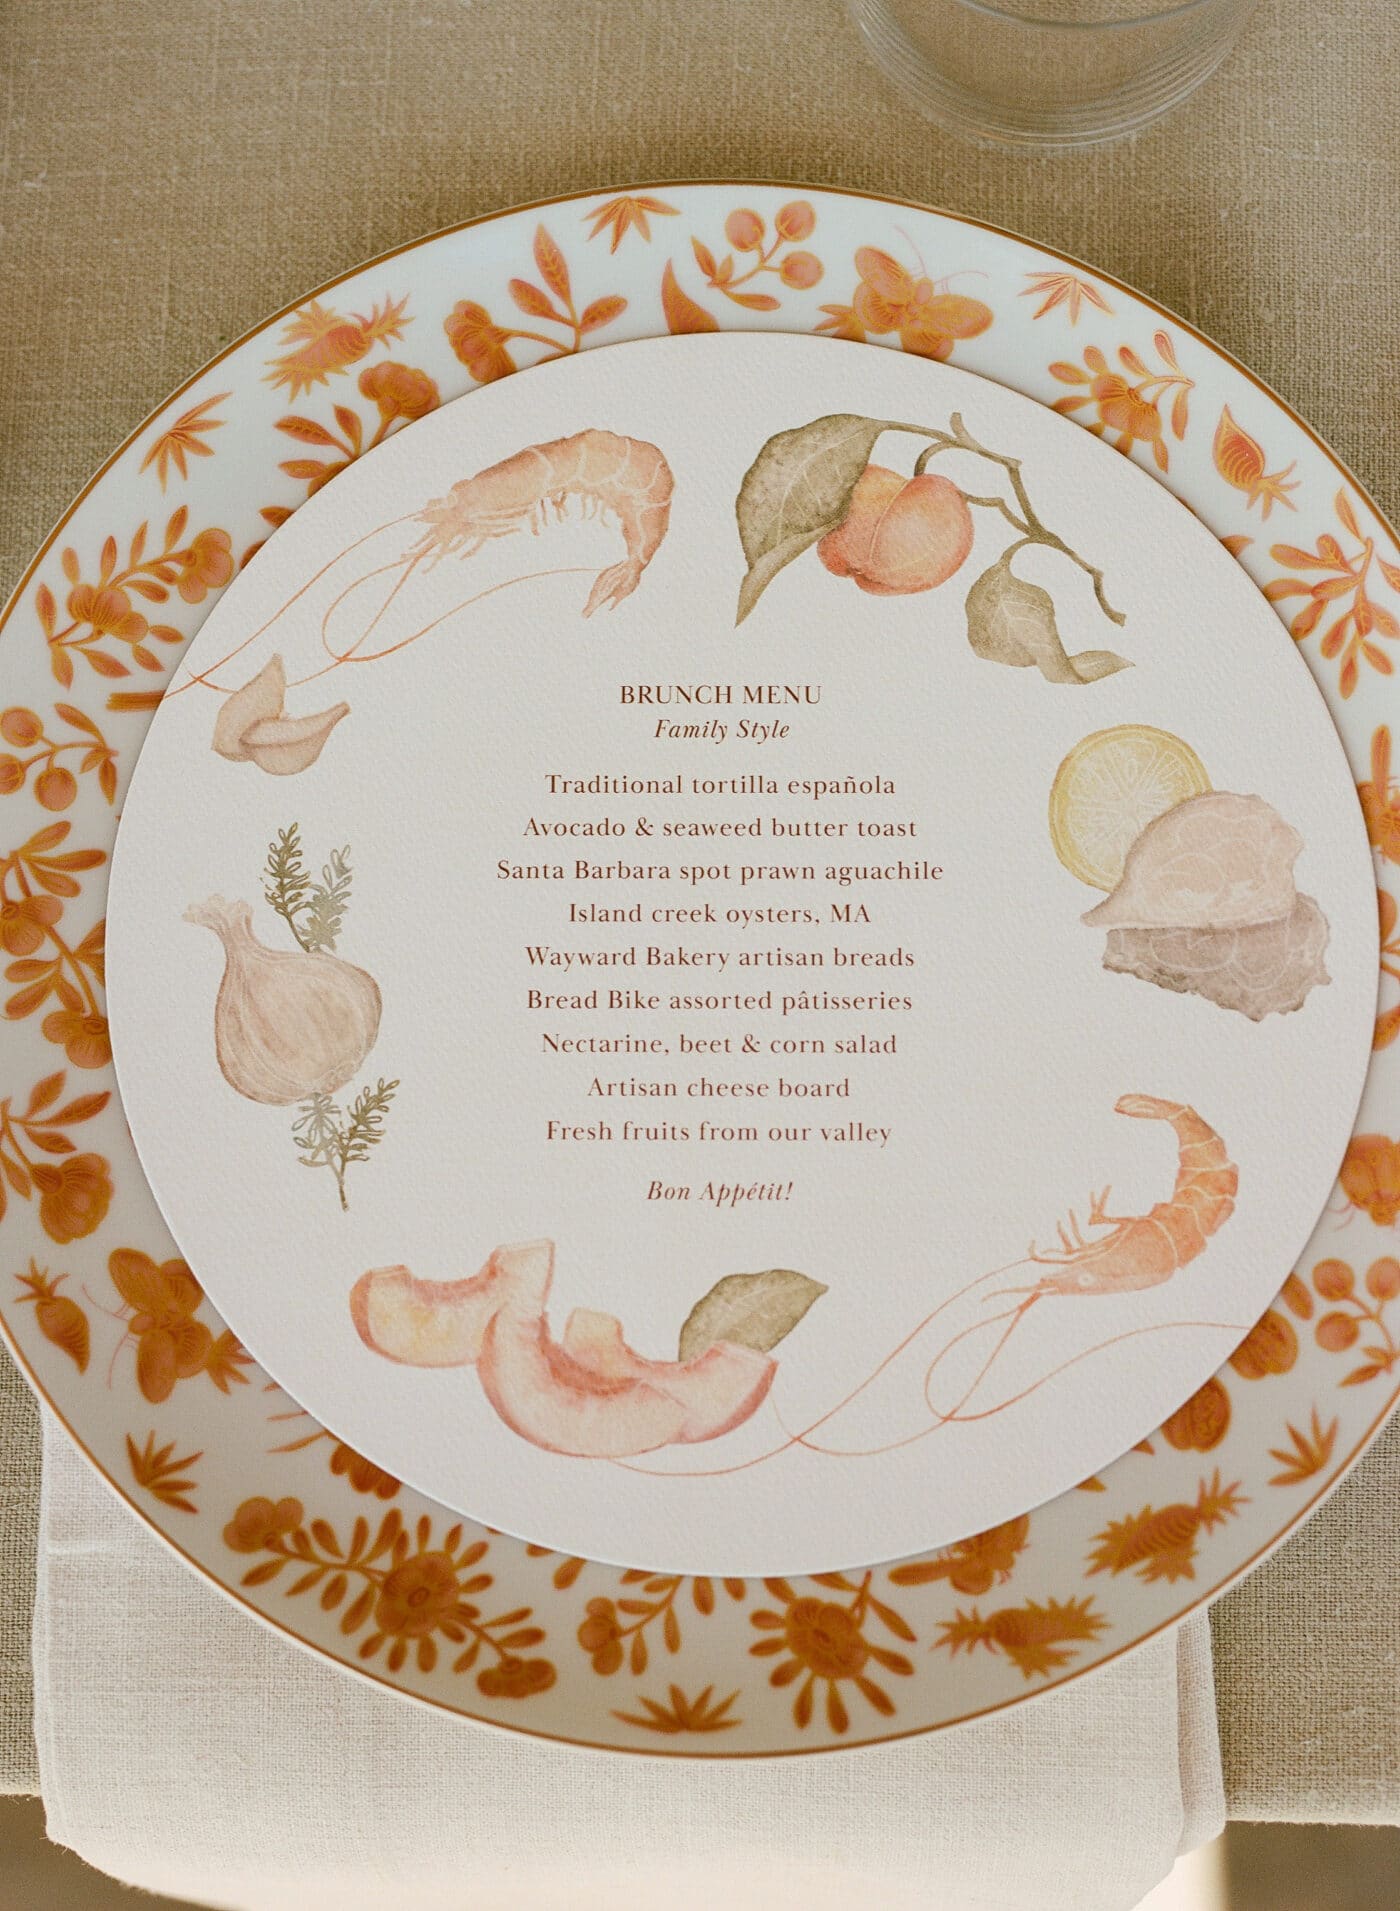 BRUNCH MENU
Family Style
Traditional tortilla española
Avocado & seaweed butter toast
Santa Barbara spot prawn aguachile
Island creek oysters, MA
Wayward Bakery artisan breads
Bread Bike assorted pâtisseries
Nectarine, beet & corn salad
Artisan cheese board
Fresh fruits from our valley
Bon Appétit!